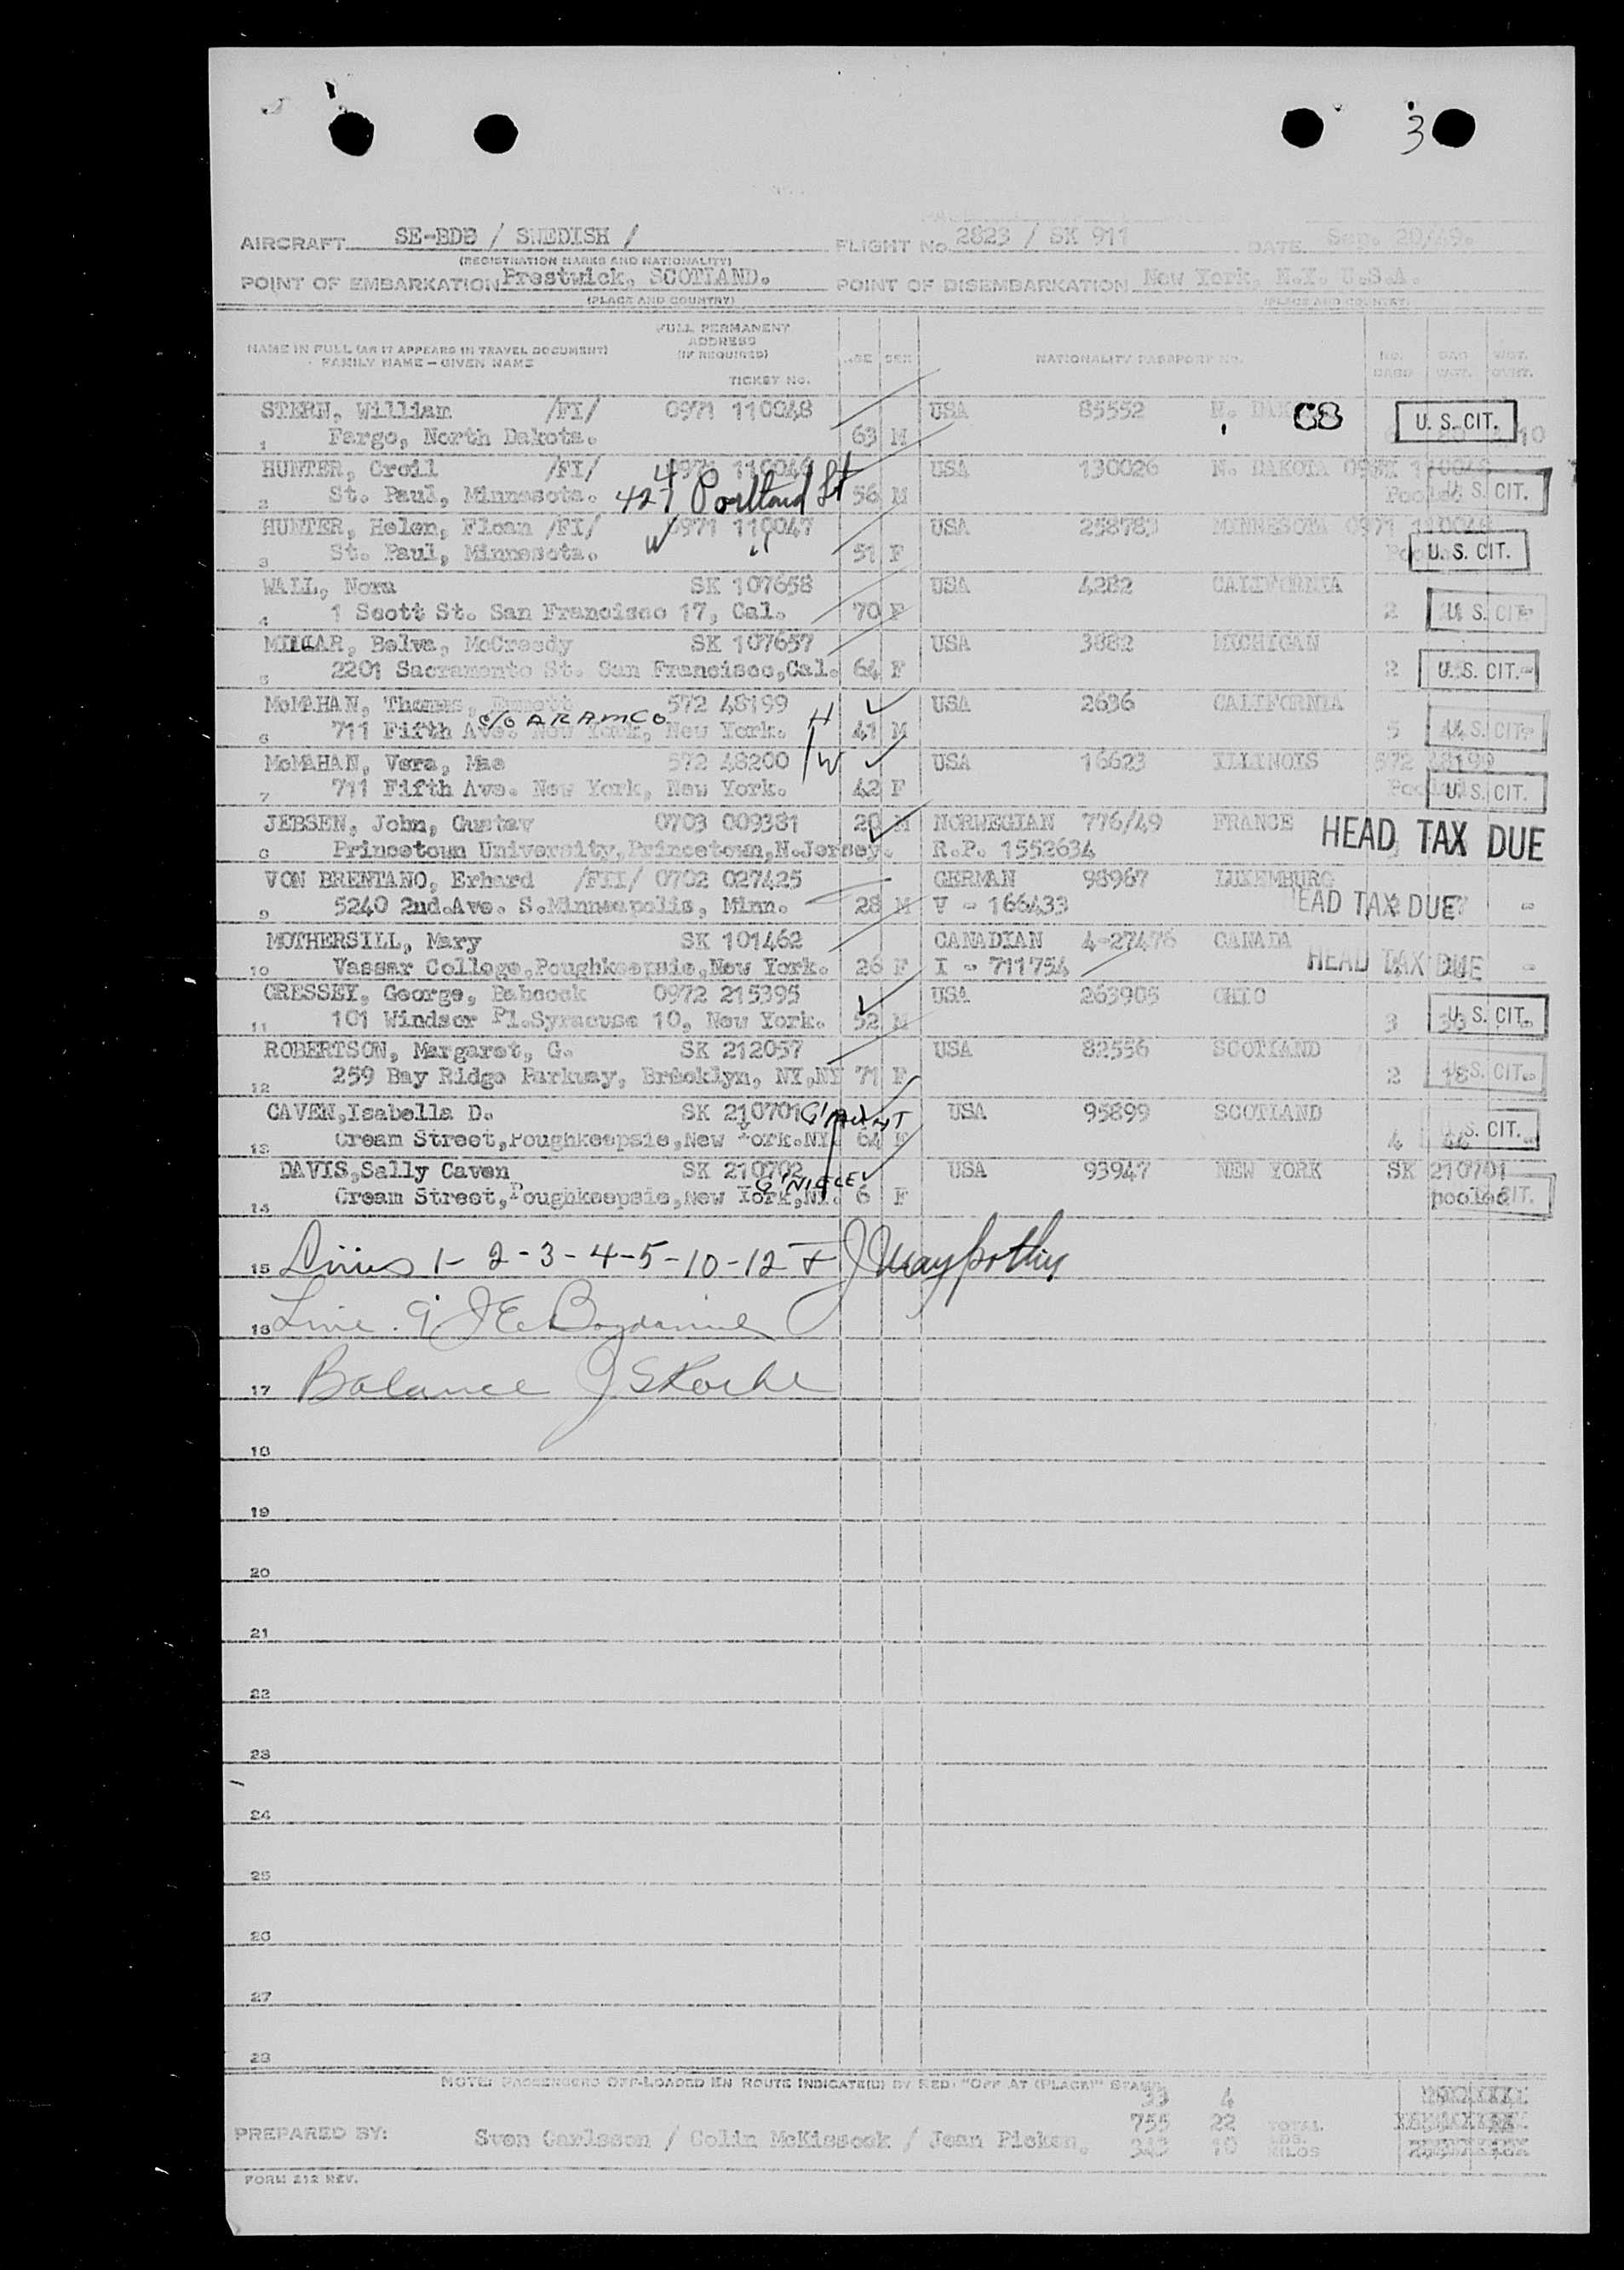 3
AIRCRAFT SE-BDB / SWEDISH / FLIGHT No. 2823 / SK 911 DATE Sep. 20/49.
(REGISTRATION MARKS AND NATIONALITY)
POINT OF EMBARKATION Prestwick, SCOTLAND. POINT OF DISEMBARKATION New York, N.Y. U.S.A.
(PLACE AND COUNTRY) (PLACE AND COUNTRY)
FULL PERMANENT
ADDRESS
NAME IN FULL (AS IT APPEARS IN TRAVEL DOCUMENT) (IF REQUIRED) AGE SEX NATIONALITY PASSPORT No. NO. BAG WGT.
FAMILY NAME — GIVEN NAME
TICKET NO.
STERN, William /FI/ 0971 110048 USA 85552 N. DAK 68 U. S. CIT.
1 Fargo, North Dakota. 63 M 10
HUNTER, Croil /FI/ 0971 110046 USA 130026 N. DAKOTA
2 St. Paul, Minnesota. 427 Portland St 56 M U. S. CIT.
HUNTER, Helen, Floan /FI/ W 0971 110047 USA 258783 MINNESOTA 0971
3 St. Paul, Minnesota. " 51 F U. S. CIT.
WALL, Nora SK 107658 USA 4282 CALIFORNIA
4 1 Scott St. San Francisco 17, Cal. 70 F 2 U. S. CIT.
MILLAR, Belva, McCreedy SK 107657 USA 3882 MICHIGAN
5 2201 Sacramento St. San Francisco,Cal. 64 F 2 U. S. CIT.
McMAHAN, Thomas, Emmott 572 48199 USA 2636 CALIFORNIA
c/o ARAMCO H
6 711 Fifth Ave. New York, New York. 41 M 5 44 U. S. CIT.
McMAHAN, Vera, Mae 572 48200 W USA 16623 ILLINOIS 572 48199
7 711 Fifth Ave. New York, New York. 42 F Pooled U. S. CIT.
JEBSEN, John, Gustav 0703 009381 20 M NORWEGIAN 776/49 FRANCE HEAD TAX DUE
8 Princetown University,Princetown,N.Jersey. R.P. 1552634
VON BRENTANO, Erhard /FII/ 0702 027425 GERMAN 98967 LUXEMBURG
9 5240 2nd.Ave. S.Minneapolis, Minn. 28 M V - 166433 HEAD TAX DUE -
MOTHERSILL, Mary SK 101462 CANADIAN 4-27476 CANADA HEAD TAX DUE
10 Vassar College,Poughkeepsie,New York. 26 F I - 711754 -
CRESSEY, George, Babcock 0972 215395 USA 263905 OHIO
11 101 Windsor Pl.Syracuse 10, New York. 52 M 3 U. S. CIT.
ROBERTSON, Margaret, G. SK 212057 USA 82556 SCOTLAND
12 259 Bay Ridge Parkway, Brooklyn, NY,NY 71 F 2 18 U. S. CIT.
CAVEN,Isabella D. SK 210701 G'AUNT USA 95899 SCOTLAND
13 Cream Street,Poughkeepsie,New York.NY. 64 F 4 44 U. S. CIT.
DAVIS,Sally Caven SK 210702 G'NIECE USA 93947 NEW YORK SK 210701
14 Cream Street,Poughkeepsie,New York,NY. 6 F pooled CIT.
15 Lines 1- 2-3-4-5-10-12
16 Line 9
17 Balance
18
19
20
21
22
23
24
25
26
27
28
NOTE: PASSENGERS OFF-LOADED EN ROUTE INDICATE(D) BY RED: "OFF AT (PLACE)" STAMP.
33 4
755 22 TOTAL
PREPARED BY: Sven Carlsson / Colin McKissock / Jean Picken. 343 10 LBS. KILOS
FORM 212 REV.